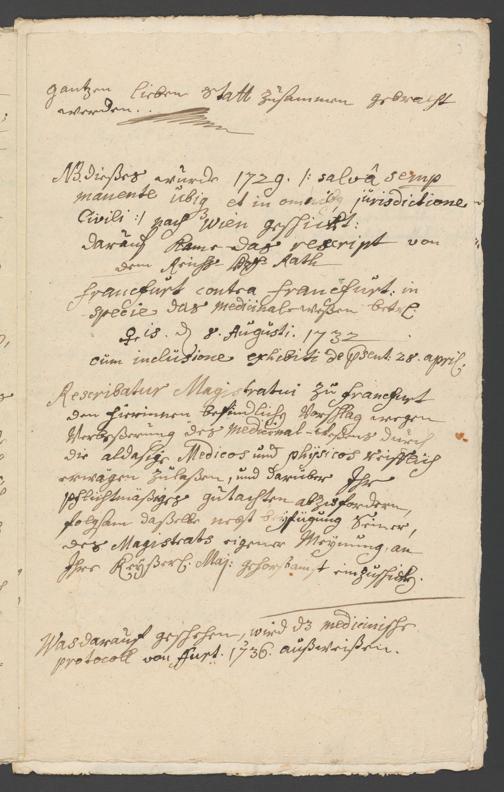 gantzen lieben Statt zusammen gebracht
werden.
NB. dießes wurde 1729. /: salvâ semp
manente ubiq et in omnib jurisdictione
Civili :/ nach Wien geschickt:
darauf kame das rescript von
dem Reichs Hof Rath
Francfurt contra Francfurt: in
specie das medicinal weßen betr.
♀is. d 8. Augusti. 1732
cum inclusione exhibiti de psent. 28. april.
Rescribatur Magistratui zu Franckfurt
den hierinnen befindlich Vorschlag wegen
Verbeßerung des medicinal-weßens durch
die aldasige Medicos und physicos reifflich
erwägen zulaßen, und darüber Ihr
pflichtmäßiges gutachten abzufordern,
folgsam dasselbe nebst beyfügung Seiner,
des Magistrats eigener Meynung, an
Ihre Kayßerl. Maj: gehorsamst einzuschick.
Was darauf geschehen, wird dz medicinische
protocoll von 1736. außweißen.